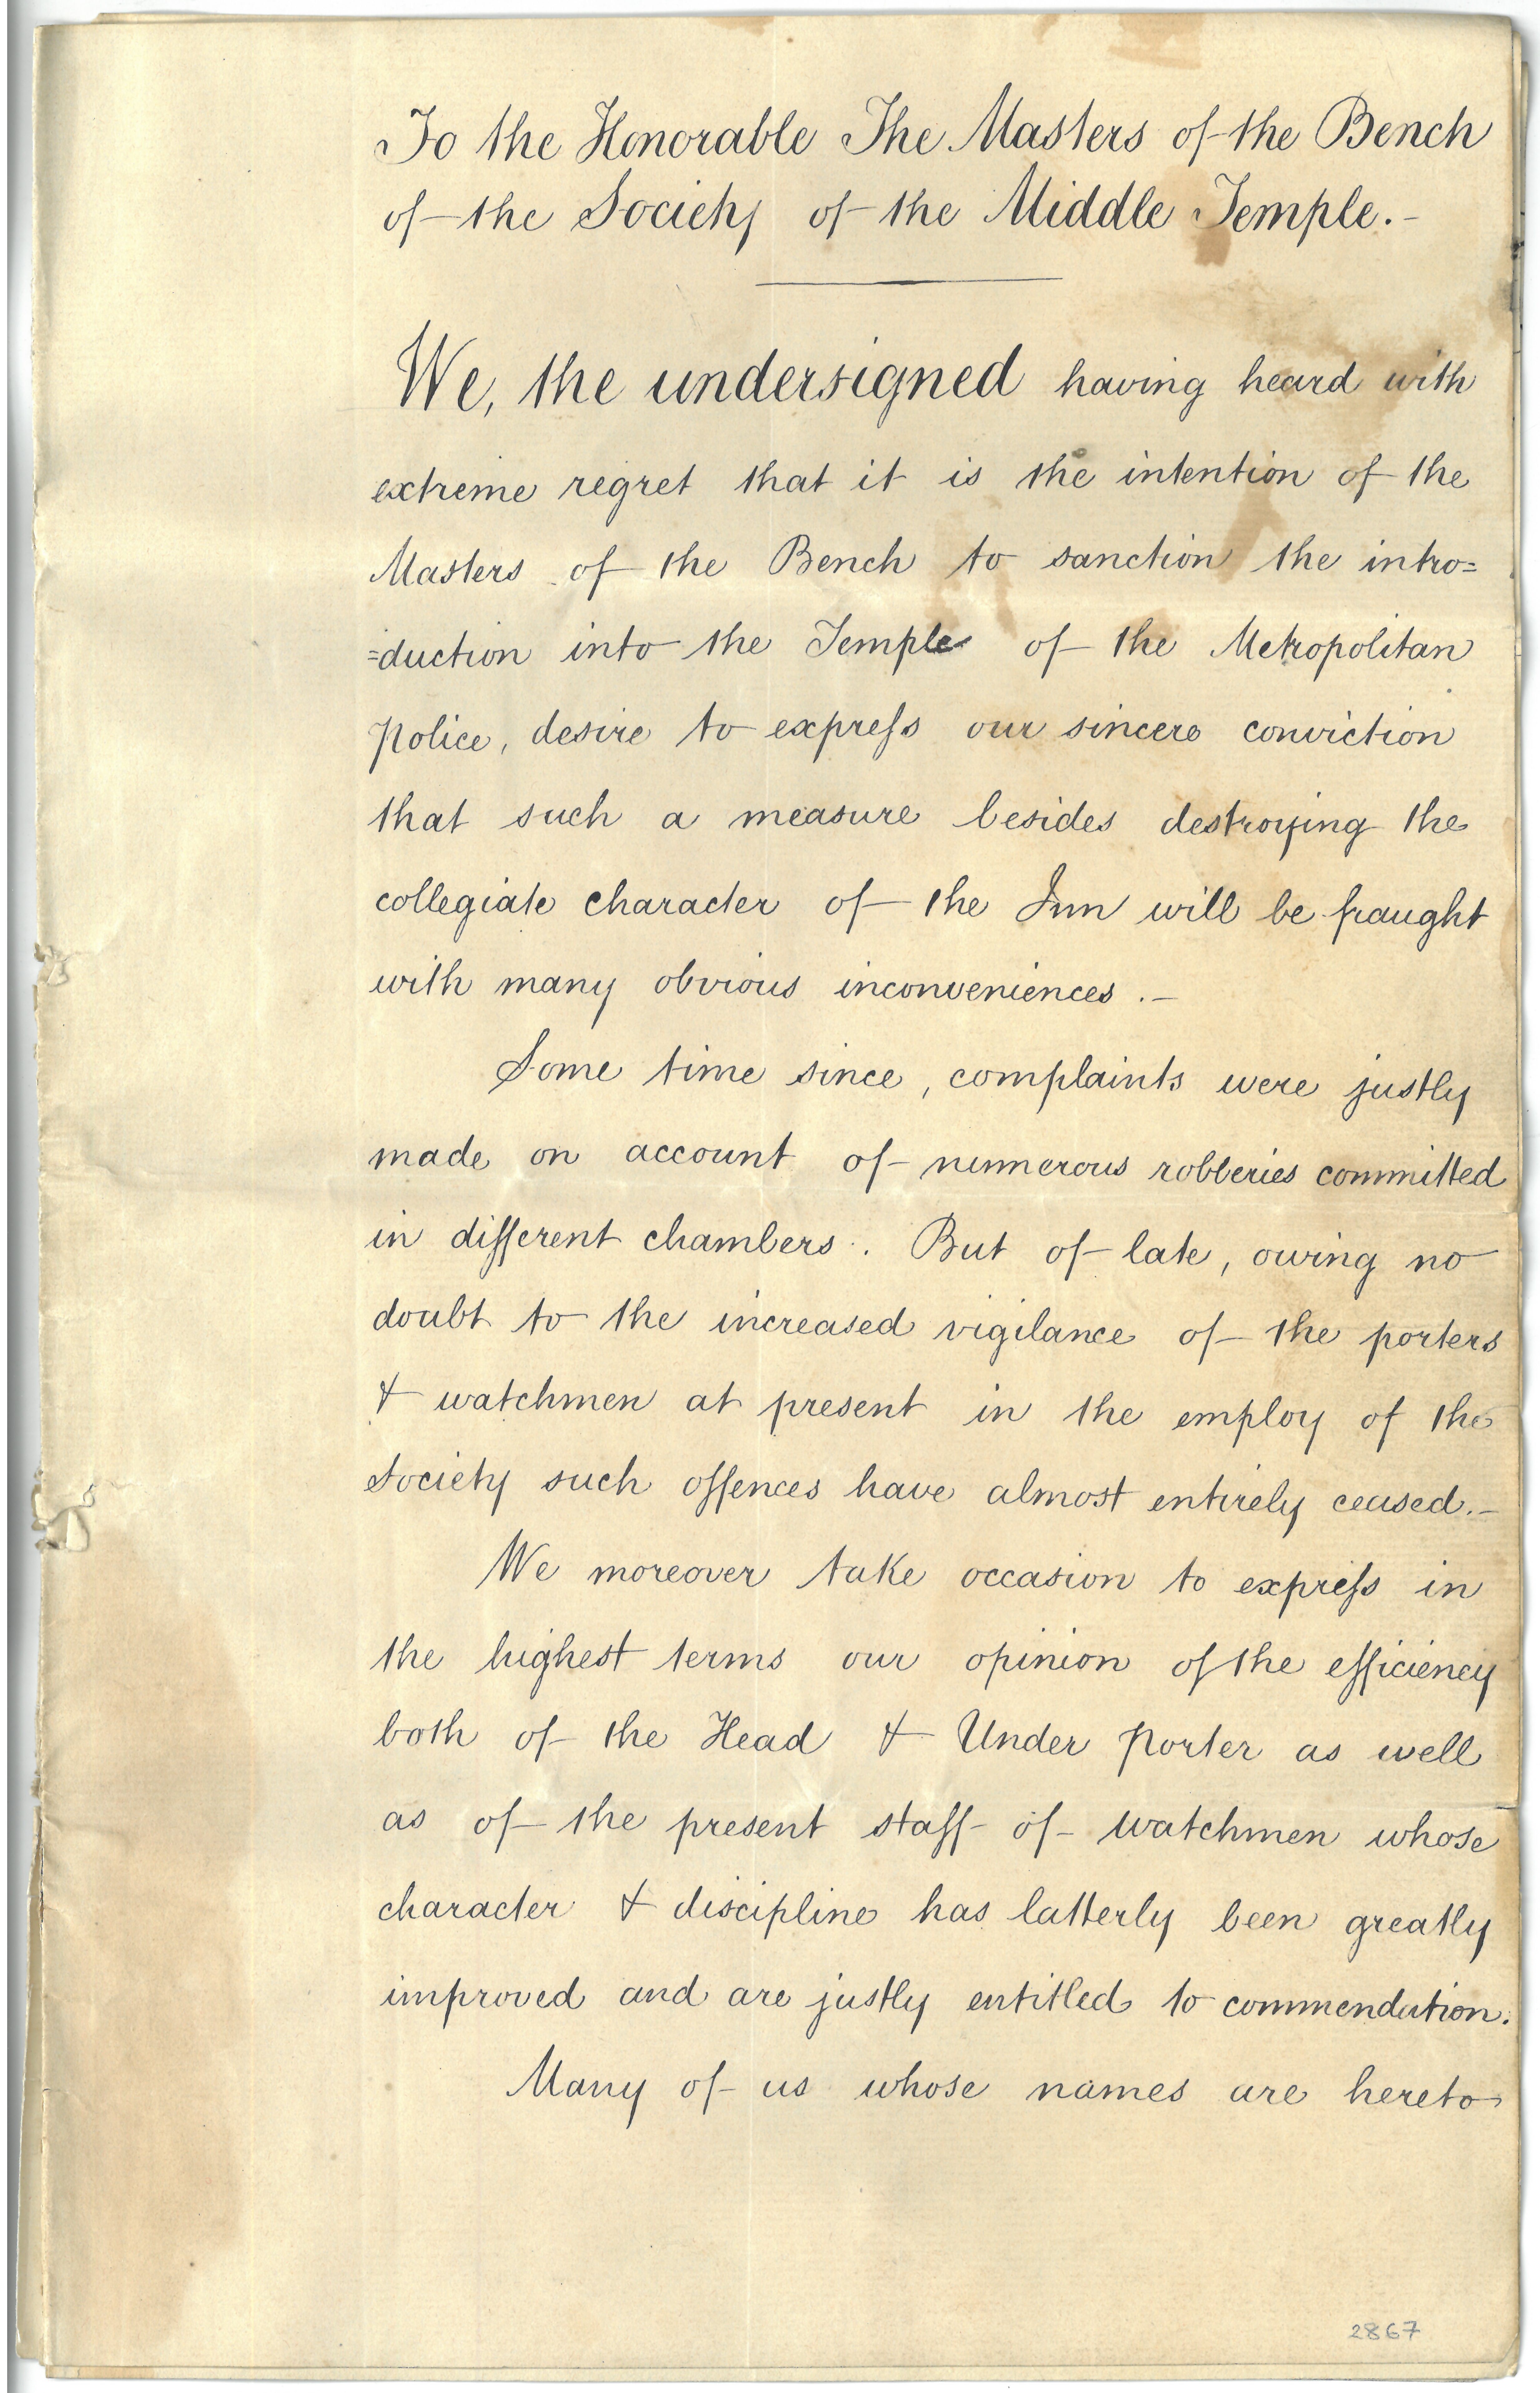 To the Honorable The Masters of the Bench
of the Society of the Middle Temple.-
We, the undersigned having heard with
extreme regret that it is the intention of the
Masters of the Bench to sanction the intro=
=duction into the Temple of the Metropolitan
Police, desire to expreſs our sincere conviction
that such a measure besides destroying the
collegiate character of the Inn will be fraught
with many obvious inconveniences.-
Some time since, complaints were justly
made on account of numerous robberies committed
in different chambers. But of late, owing no
doubt to the increased vigilance of the porters
& watchmen at present in the employ of the
Society such offences have almost entirely ceased.-
We moreover take occasion to expreſs in
the highest terms our opinion of the efficiency
both of the Head & Under Porter as well
as of the present staff of watchmen whose
character & discipline has latterly been greatly
improved and are justly entitled to commendation.
Many of us whose names are hereto
2867